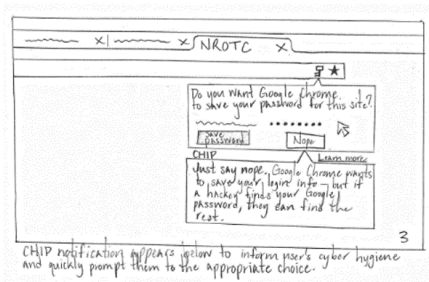 NROTC
Do you want Google Chrome
to save your password for this site?
save
password
Nope
CHIP
Learn more
Just say nope. Google Chrome wants
to save your login info - but if
a hacker finds your Google
password, they can find the
rest.
3
CHIP notification appears below to inform user's cyber hygiene
and quickly prompt them to the appropriate choice.